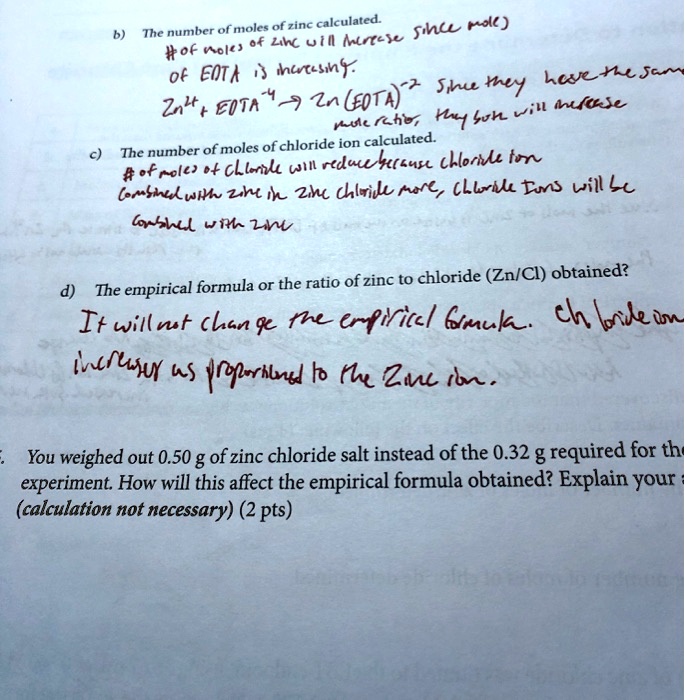 b) The number of moles of zinc calculated.
# of moles of zinc will increase since moles
of EDTA is increasing.
Zn2+ + EDTA-4 → Zn(EDTA)-2 Since they have the sam
mole ratios, they both will increase
c) The number of moles of chloride ion calculated.
# of moles of chloride will reduce because chloride ion
Combined with zinc in zinc chloride more, chloride Ions will be
Combined with zinc
d) The empirical formula or the ratio of zinc to chloride (Zn/Cl) obtained?
It will not change the empirical formula. chloride ion
increases as to the Zinc ion.
. You weighed out 0.50 g of zinc chloride salt instead of the 0.32 g required for the
experiment. How will this affect the empirical formula obtained? Explain your
(calculation not necessary) (2 pts)